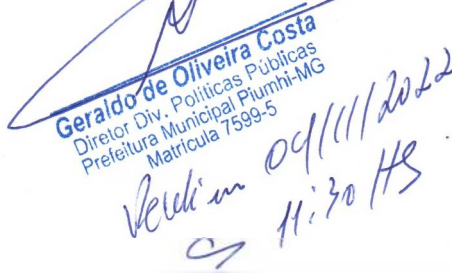 Geraldo de Oliveira Costa
Diretor Div. Políticas Públicas
Prefeitura Municipal Piumhi-MG
Matrícula 7599-5
04/11/2022
11:30 HS